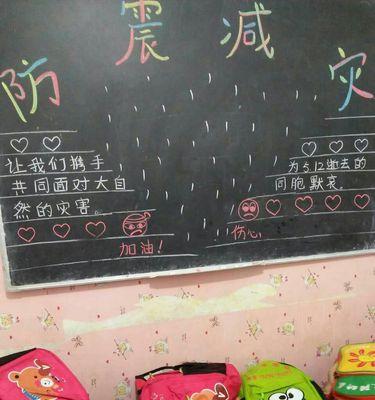 防震减灾
让我们携手
共同面对大自
然的灾害。
加油!
为5.12逝去的
同胞默哀。
伤心